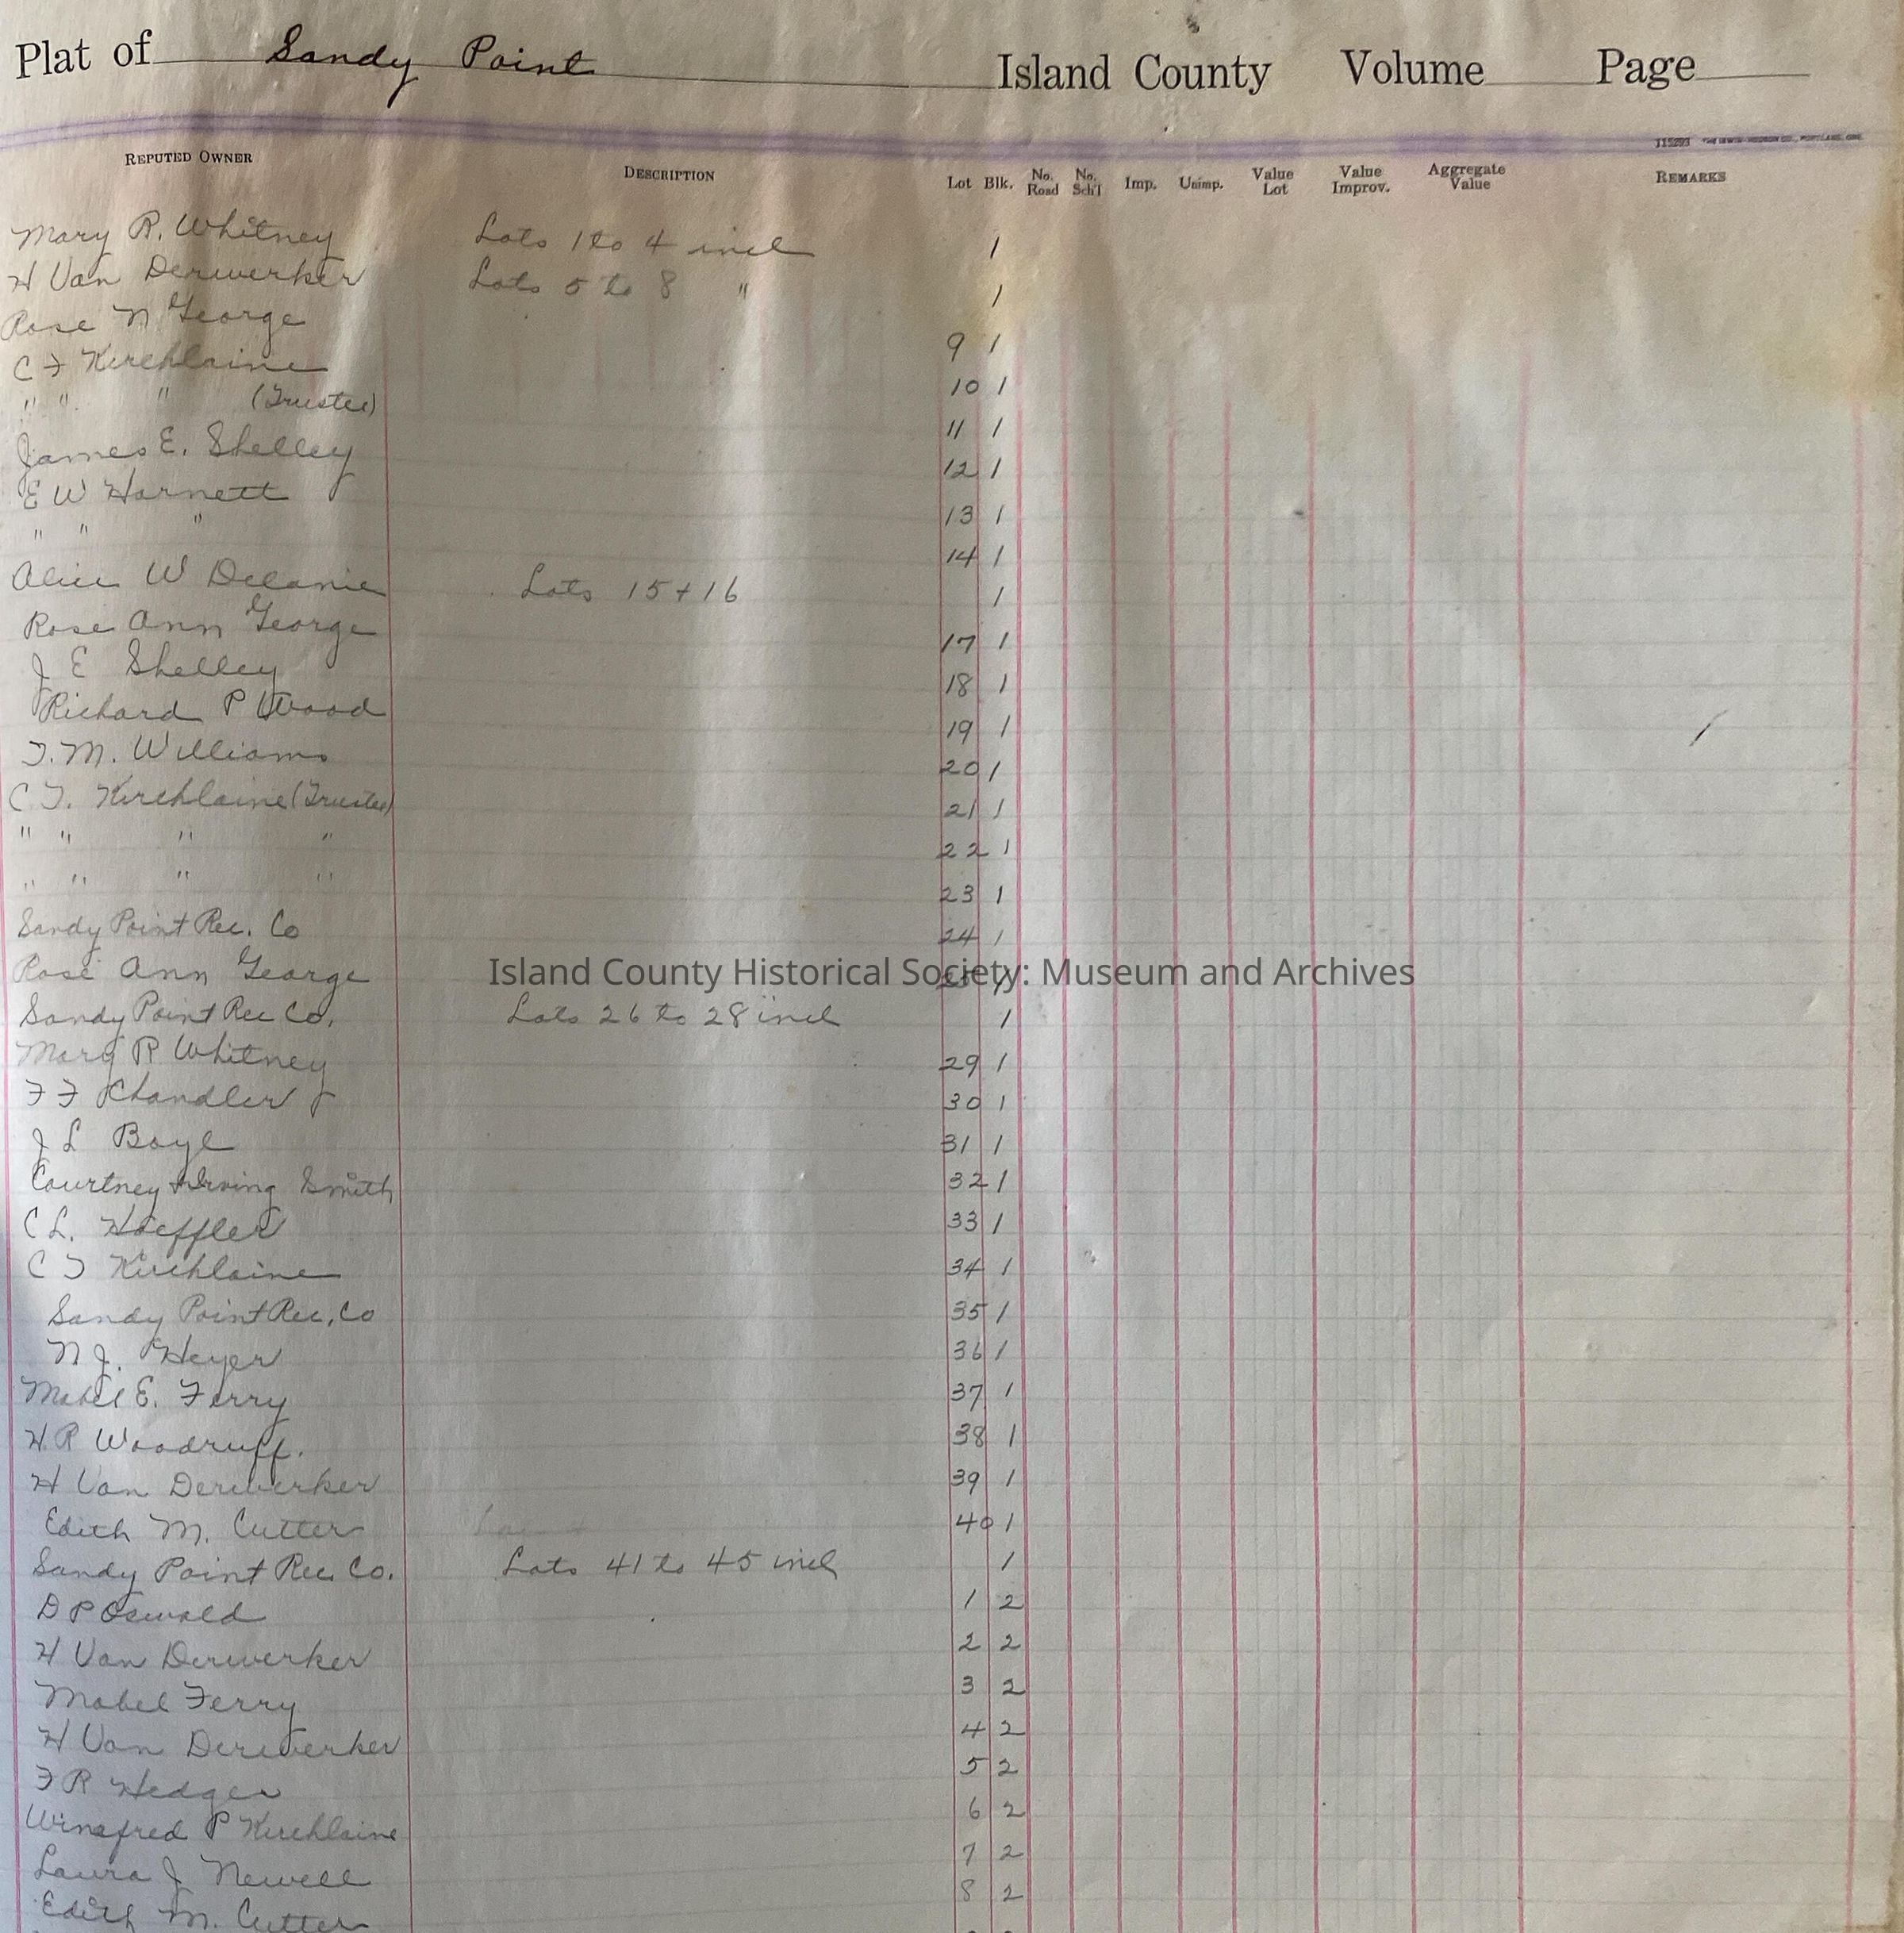 Plat of Sandy Point Island County Volume Page
115293
REPUTED OWNER DESCRIPTION Lot Blk. No. Road No. Sch'l Imp. Unimp. Value Lot Value Improv. Aggregate Value REMARKS
Mary R. Whitney Lots 1 to 4 incl 1
H Van Derwerker Lots 5 to 8 " 1
Rose N George 9 1
C F Kirchlaine 10 1
" " " (Trustee) 11 1
James E. Shelley 12 1
E W Harnett 13 1
" " " 14 1
Alice W Delanie Lots 15 + 16 1
Rose Ann George 17 1
J E Shelley 18 1
Richard P Wood 19 1
T. M. Williams 20 1
C F. Kirchlaine (Trustee) 21 1
" " " " 22 1
" " " " 23 1
Sandy Point Rec. Co 24 1
Rose Ann George 25 1
Island County Historical Society: Museum and Archives
Sandy Point Rec Co. Lots 26 to 28 incl 1
Mary R Whitney 29 1
F F Chandler 30 1
J L Boyl 31 1
Courtney Irving Smith 32 1
C L. Hoeffler 33 1
C F Kirchlaine 34 1
Sandy Point Rec. Co 35 1
N J. Heyer 36 1
Mabel E. Ferry 37 1
H. R Woodruff. 38 1
H Van Derwerker 39 1
Edith M. Cutter 40 1
Sandy Point Rec. Co. Lots 41 to 45 incl 1
D P Oswald 1 2
H Van Derwerker 2 2
Mabel Ferry 3 2
H Van Derwerker 4 2
F R Hedger 5 2
Winafred P Kirchlaine 6 2
Laura J Newell 7 2
Edith M. Cutter 8 2